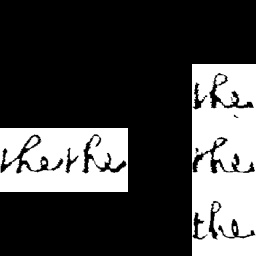 the
the the
the
the